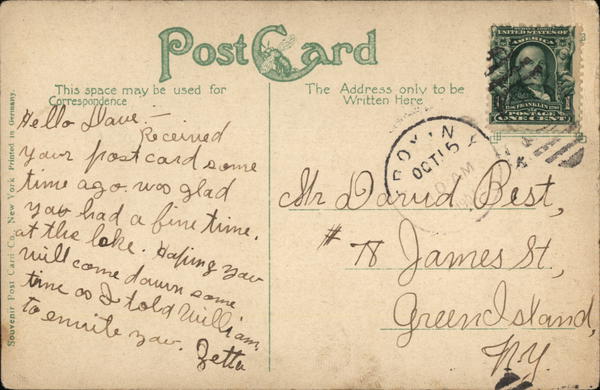 Post Card
This space may be used for
Correspondence
The Address only to be
Written Here
UNITED STATES OF
AMERICA
FRANKLIN
POSTAGE
1 ONE CENT 1
OCT 15
AM
N.Y.
Hello Dave:-
Received
your post card some
time ago was glad
you had a fine time.
at the lake. Hoping you
will come down some
time as I told William
to envite you.
Zetta
Mr David Best,
# 78 James St,
Green Island,
N.Y.
Souvenir Post Card Co., New York Printed in Germany.